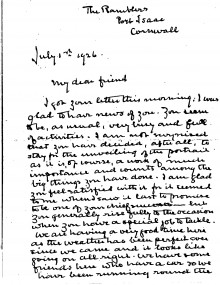 The Ramblers
Port Isaac
Cornwall
July 1st 1926.
My dear friend
I got your letter this morning; I was
glad to have news of you. You seem
to be, as usual, very busy and full
of activities. I am not surprised
that you have decided, after all, to
stay for the unveiling of the portrait
as it is, of course, a work of much
importance and counts among the
big things you have done. I am glad
you feel satisfied with it for it seemed
to me when I saw it last to promise
to be one of your chief but
you generally rise fully to the occasion
when you have a special job to tackle.
We are having a very good time here
as the weather has been perfect ever
since we came and it looks like
going on all right. We have some
friends here who have a car so we
have been running round the